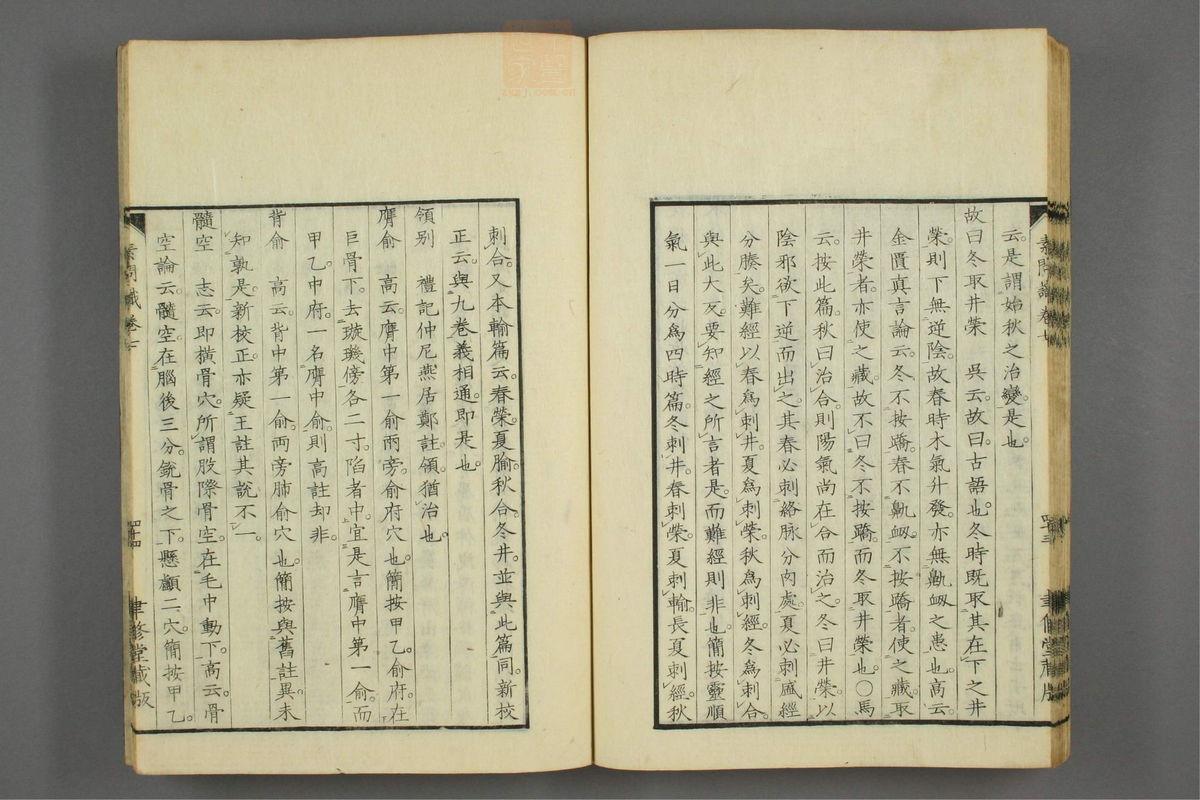 云。是謂始秋之治變。是也。
故曰冬取井榮　吳云。故曰。古語也。冬時既取其在下之井
榮。則下無逆陰。故春時木氣升發。亦無鼽衂之患也。高云。
金匱真言論云。冬不按蹻。春不鼽衂。不按蹻者。使之藏。取
井榮者。亦使之藏。故不曰冬不按蹻。而冬取井榮也。○馬
云。按此篇。秋曰治合。則陽氣尚在合而治之。冬曰井榮。以
陰邪欲下逆而出之。其春必刺絡脉分肉處。夏必刺盛經
分腠矣。難經以春爲刺井。夏爲刺榮。秋爲刺經。冬爲刺合。
與此大反。要知經之所言者是。而難經則非也。簡按靈順
氣一日分爲四時篇。冬刺井。春刺榮。夏刺輸。長夏刺經。秋
素問識卷七
四十三
聿修堂藏版
刺合。又本輸篇云。春榮。夏腧。秋合。冬井。並與此篇同。新校
正云。與九卷義相通。即是也。
領别　禮記仲尼燕居鄭註。領猶治也。
膺俞　高云。膺中第一俞兩旁俞府穴也。簡按甲乙。俞府。在
巨骨下。去璇璣傍各二寸。陷者中。宜是言膺中第一俞。而
甲乙。中府。一名膺中俞。則高註却非。
背俞　高云。背中第一俞。兩旁肺俞穴也。簡按與舊註異。未
知孰是。新校正。亦疑王註其說不一。
髓空　志云。即橫骨穴。所謂股際骨空。在毛中動下。高云。骨
空論云。髓空。在腦後三分。銳骨之下。懸顱二穴。簡按甲乙。
素問識卷七
四十四
聿修堂藏版